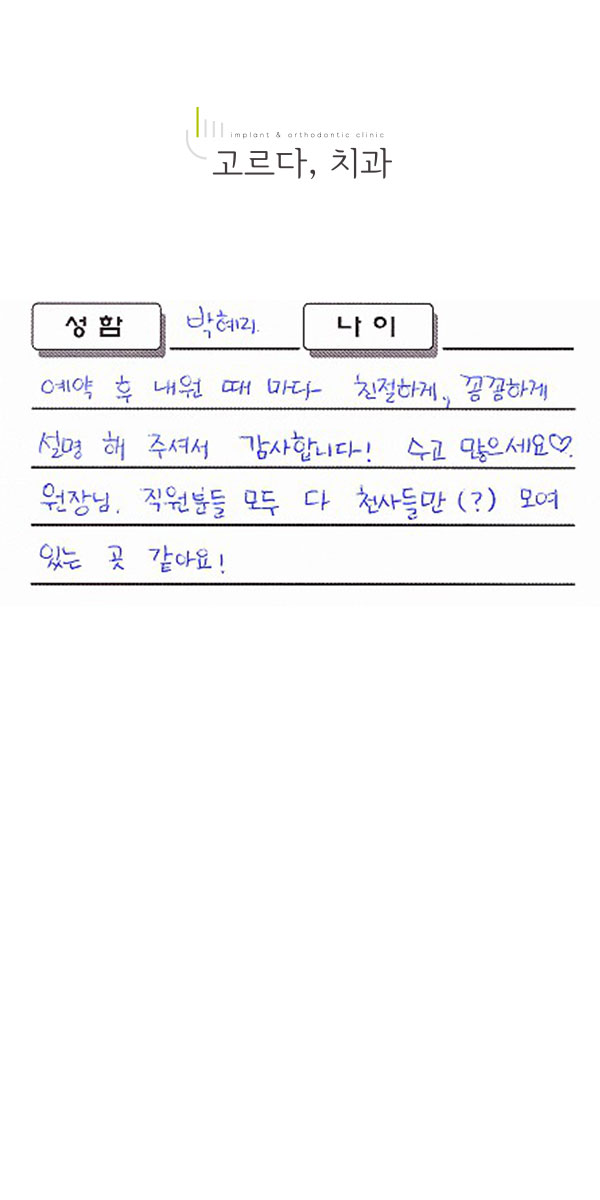 implant & orthodontic clinic
고르다, 치과
성함 박혜리. 나이
예약 후 내원 때 마다 친절하게, 꼼꼼하게
설명 해 주셔서 감사합니다! 수고 많으세요♡.
원장님. 직원분들 모두 다 천사들만 (?) 모여
있는 곳 같아요!